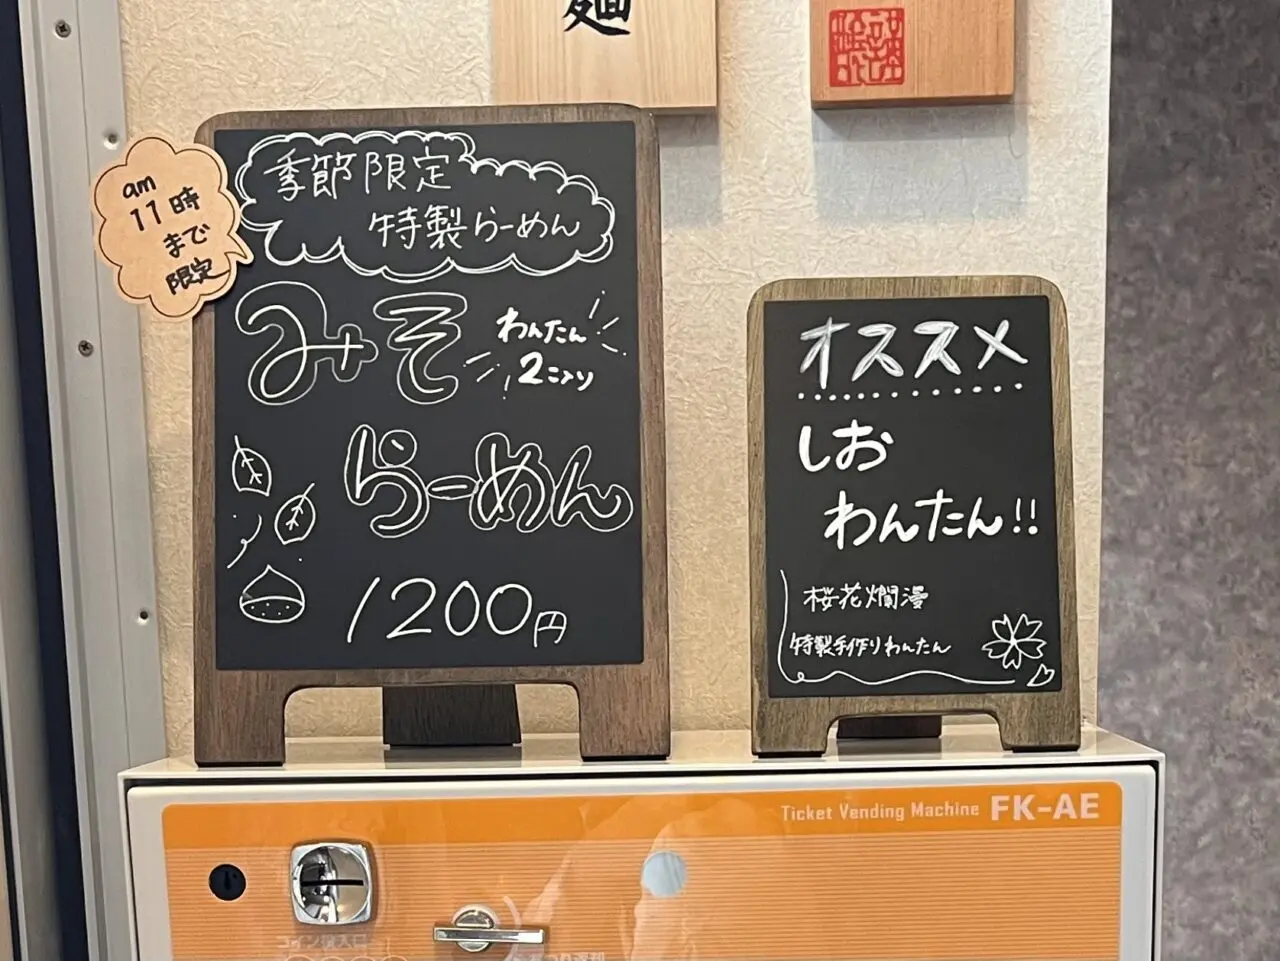 麺
am
11時
まで
限定
季節限定
特製らーめん
みそ
わんたん
2コ入り
らーめん
1200円
オススメ
しお
わんたん!!
桜花爛漫
特製手作りわんたん
Ticket Vending Machine FK-AE
コイン投入口